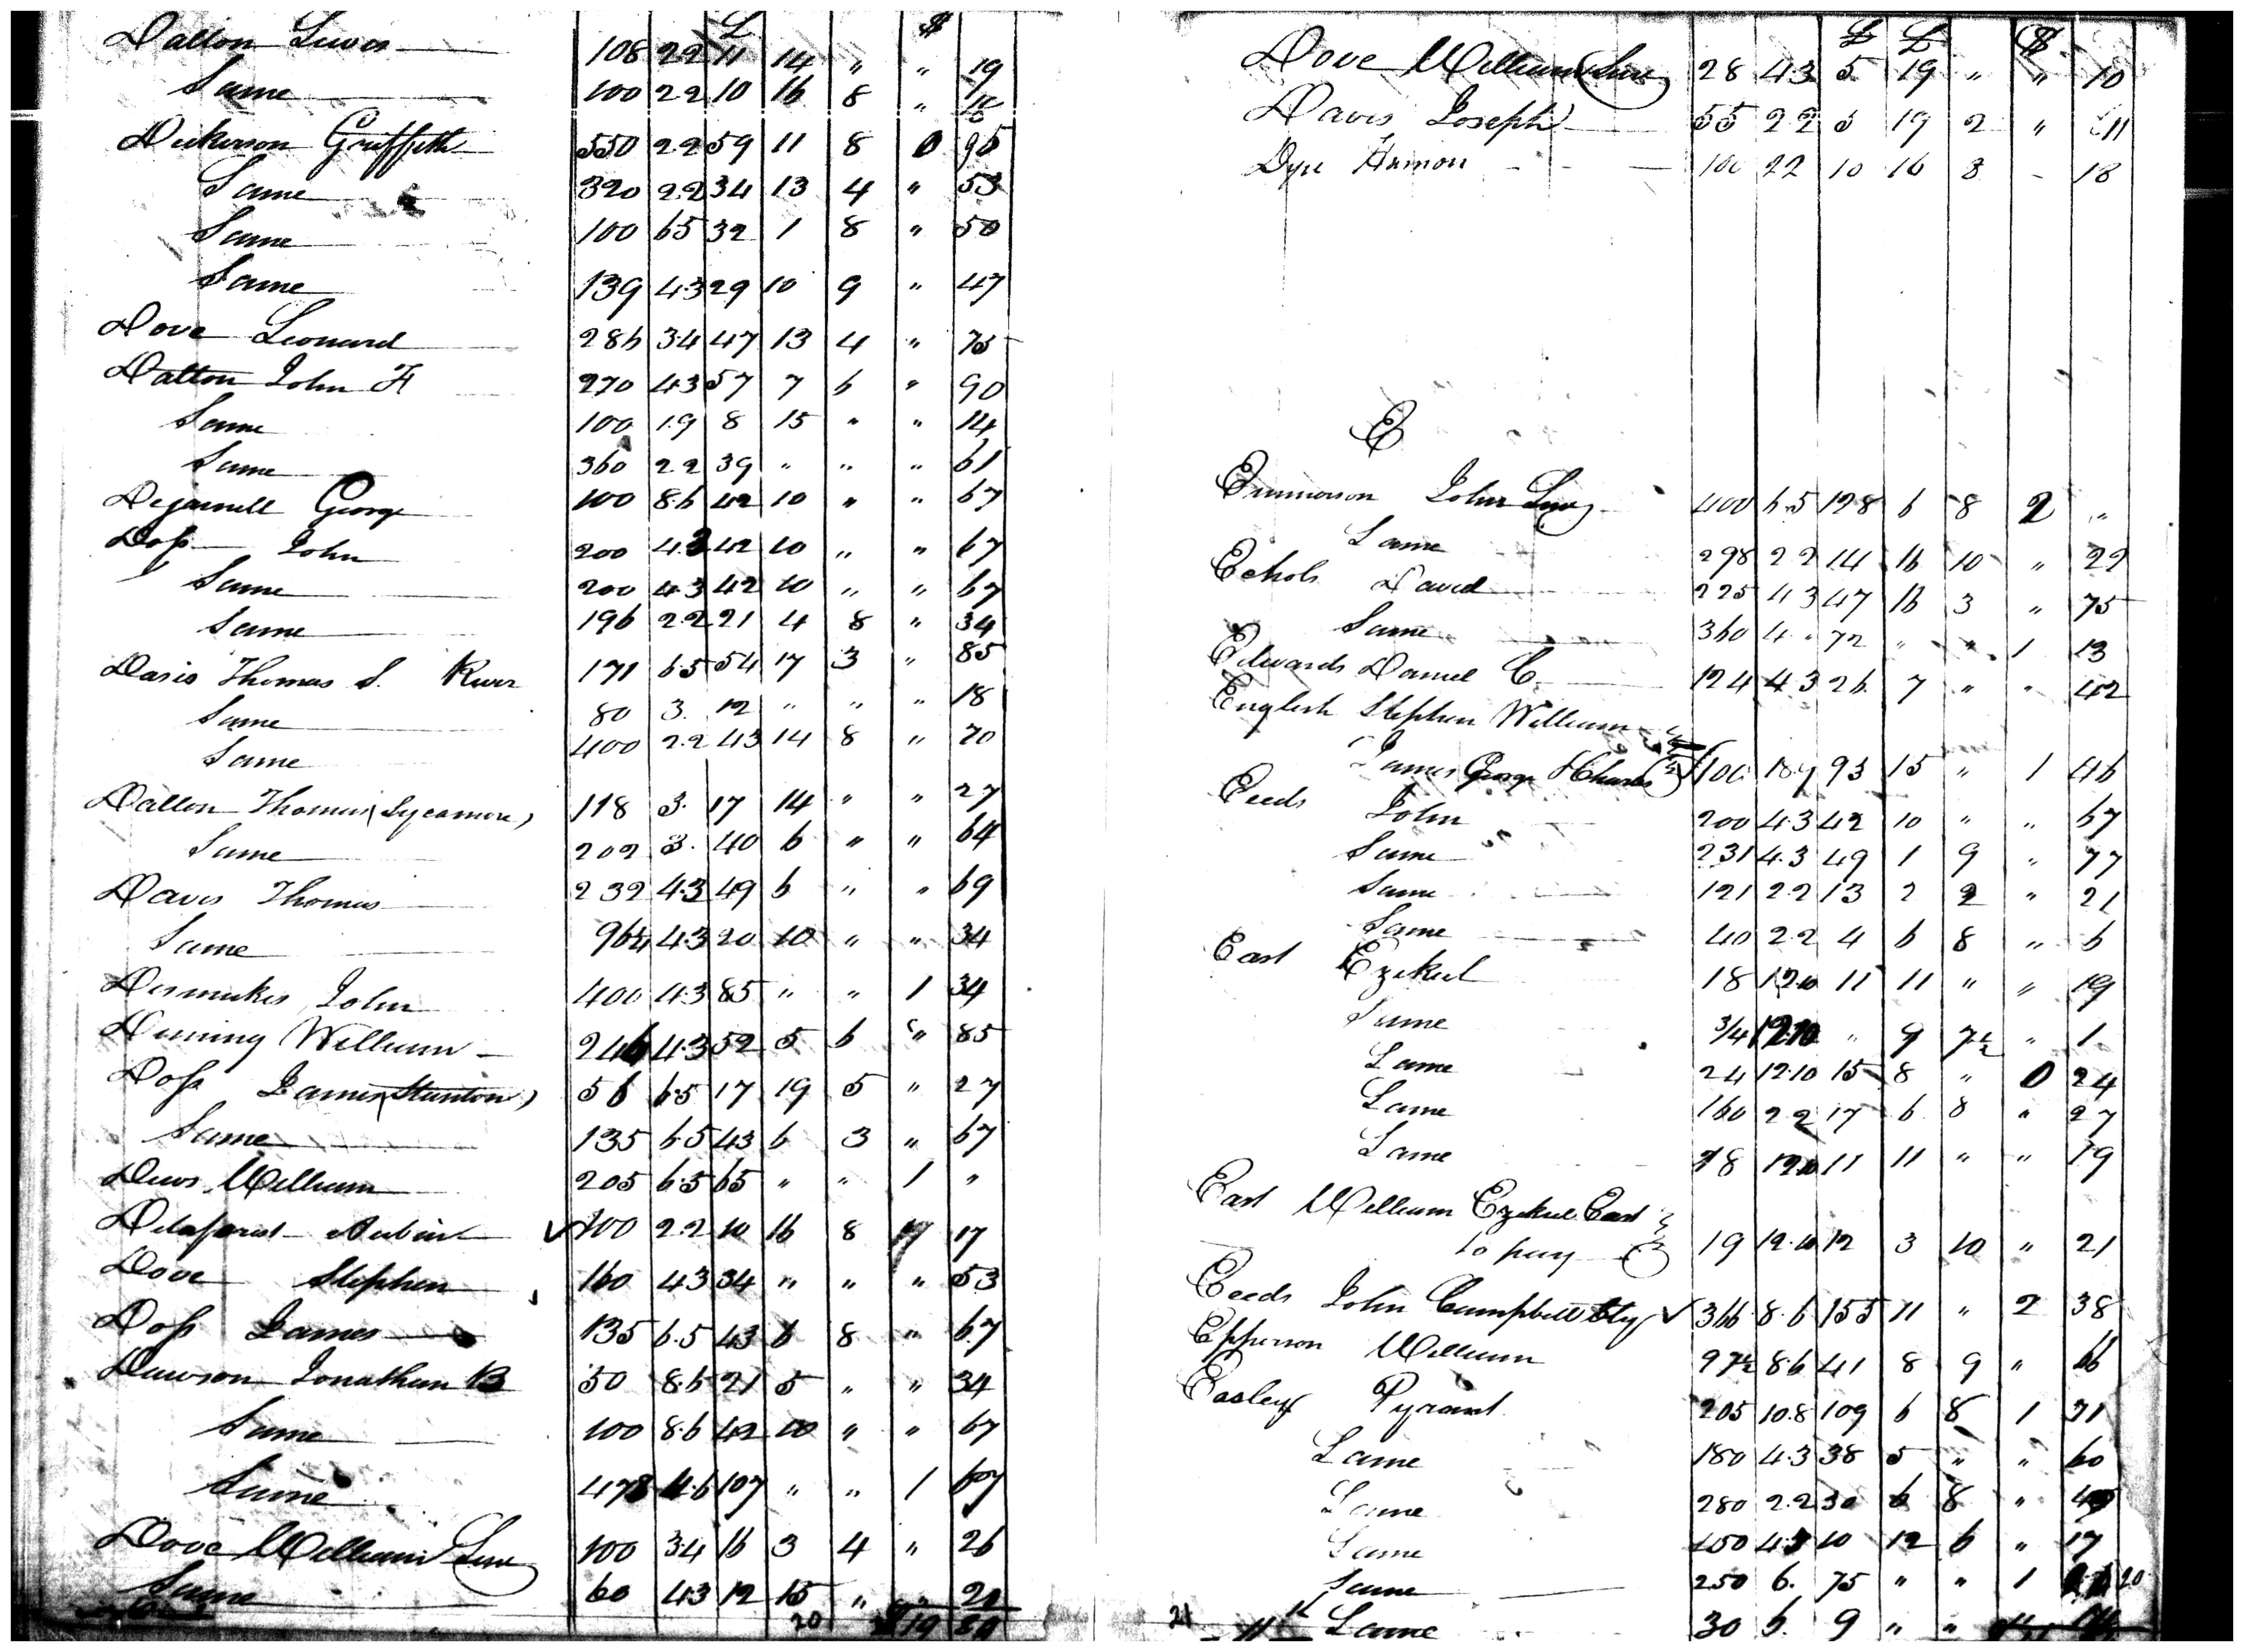 £ $
Dalton Lewis 108 2.2 11 14 " " 19
Same 100 2.2 10 16 8 " 18
Dickerson Griffith 550 2.2 59 11 8 0 95
Same 320 2.2 34 13 4 " 53
Same 100 6.5 32 1 8 " 50
Same 139 4.3 29 10 9 " 47
Dove Leonard 286 3.4 47 13 4 " 75
Dalton John H 270 4.3 57 7 6 " 90
Same 100 1.9 8 15 " " 14
Same 360 2.2 39 " " " 61
Dejarnell George 100 8.6 42 10 " " 67
Doss John 200 4.3 42 10 " " 67
Same 200 4.3 42 10 " " 67
Same 196 2.2 21 4 8 " 34
Davis Thomas S. River 171 6.5 54 17 3 " 85
Same 80 3. 12 " " " 18
Same 400 2.2 43 14 8 " 70
Dalton Thomas (Sycamore) 118 3. 17 14 " " 27
Same 202 3. 40 6 " " 64
Davis Thomas 232 4.3 49 6 " " 69
Same 96½ 4.3 20 10 " " 34
Dismukes John 400 4.3 85 " " 1 34
Duning William 246 4.3 52 5 6 " 85
Doss James (Stanton) 56 6.5 17 19 5 " 27
Same 135 6.5 43 6 3 " 67
Dews William 205 6.5 65 " " 1 "
100 2.2 10 16 8 17
Dove Stephen 160 4.3 34 " " " 53
Doss James 135 6.5 43 6 8 " 67
Dawson Jonathan B 50 8.6 21 5 " " 34
Same 100 8.6 42 10 " " 67
Same 478 4.6 107 " " 1 67
Dove William Senr 100 3.4 16 3 4 " 26
Same 60 4.3 12 15 " " 20
20
£ £ $
Dove William Senr 28 4.3 5 19 " " 10
Davis Joseph 55 2.2 5 19 2 " 11
Dyre Harmon 100 22 10 16 8 - 18
E
Emmerson John Senr 400 6.5 128 6 8 2 "
Same 298 2 2 14 16 10 " 22
Echols David 225 4 3 47 16 3 " 75
Same 360 4 " 72 " " 1 13
Edwards Daniel C. 124 4 3 26 7 " " 42
English Stephen William
James George & Charles 100 18.9 93 15 " 1 46
Eeds John 200 4.3 42 10 " " 67
Same 231 4.3 49 1 9 " 77
Same 121 2.2 13 2 2 " 21
Same 40 2.2 4 6 8 " 6
East Ezekiel 18 12.10 11 11 " " 19
Same 3/4 12.10 " 9 7½ " 1
Same 24 12.10 15 8 " 0 24
Same 160 2 2 17 6 8 " 27
Same 18 12.10 11 11 " " 19
East William Ezekiel East
to pay 19 12.10 12 3 10 " 21
Eeds John Campbell Cty ✓ 366 8.6 155 11 " 2 38
Epperson William 97½ 8.6 41 8 9 " 66
Easley Pyrant 205 10.8 109 6 8 1 71
Same 180 4.3 38 5 " " 60
Same 280 2.2 30 6 8 "
Same 150 4.3 10 12 6 " 17
Same 250 6. 75 " " 1 20
21 Same 30 6. 9 " "